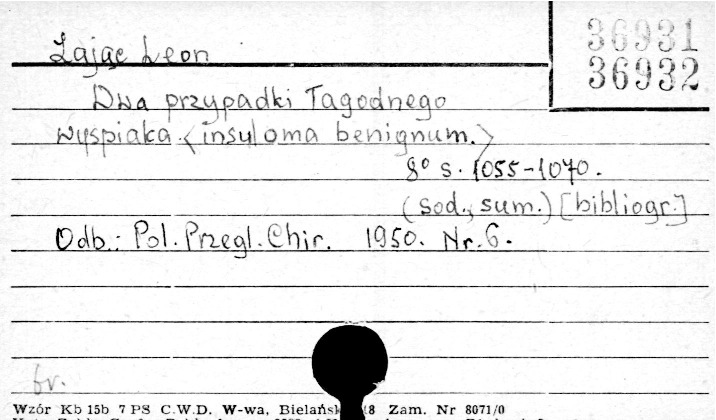 36931
36932
Zając Leon
Dwa przypadki łagodnego
wyspiaka <insuloma benignum.>
8° s. 1055-1070.
(sod., sum.) [bibliogr.]
Odb.: Pol. Przegl. Chir. 1950. Nr. 6.
br.
Wzór Kb 15b 7 PS C.W.D. W-wa, Bielańsk 18 Zam. Nr 8071/0